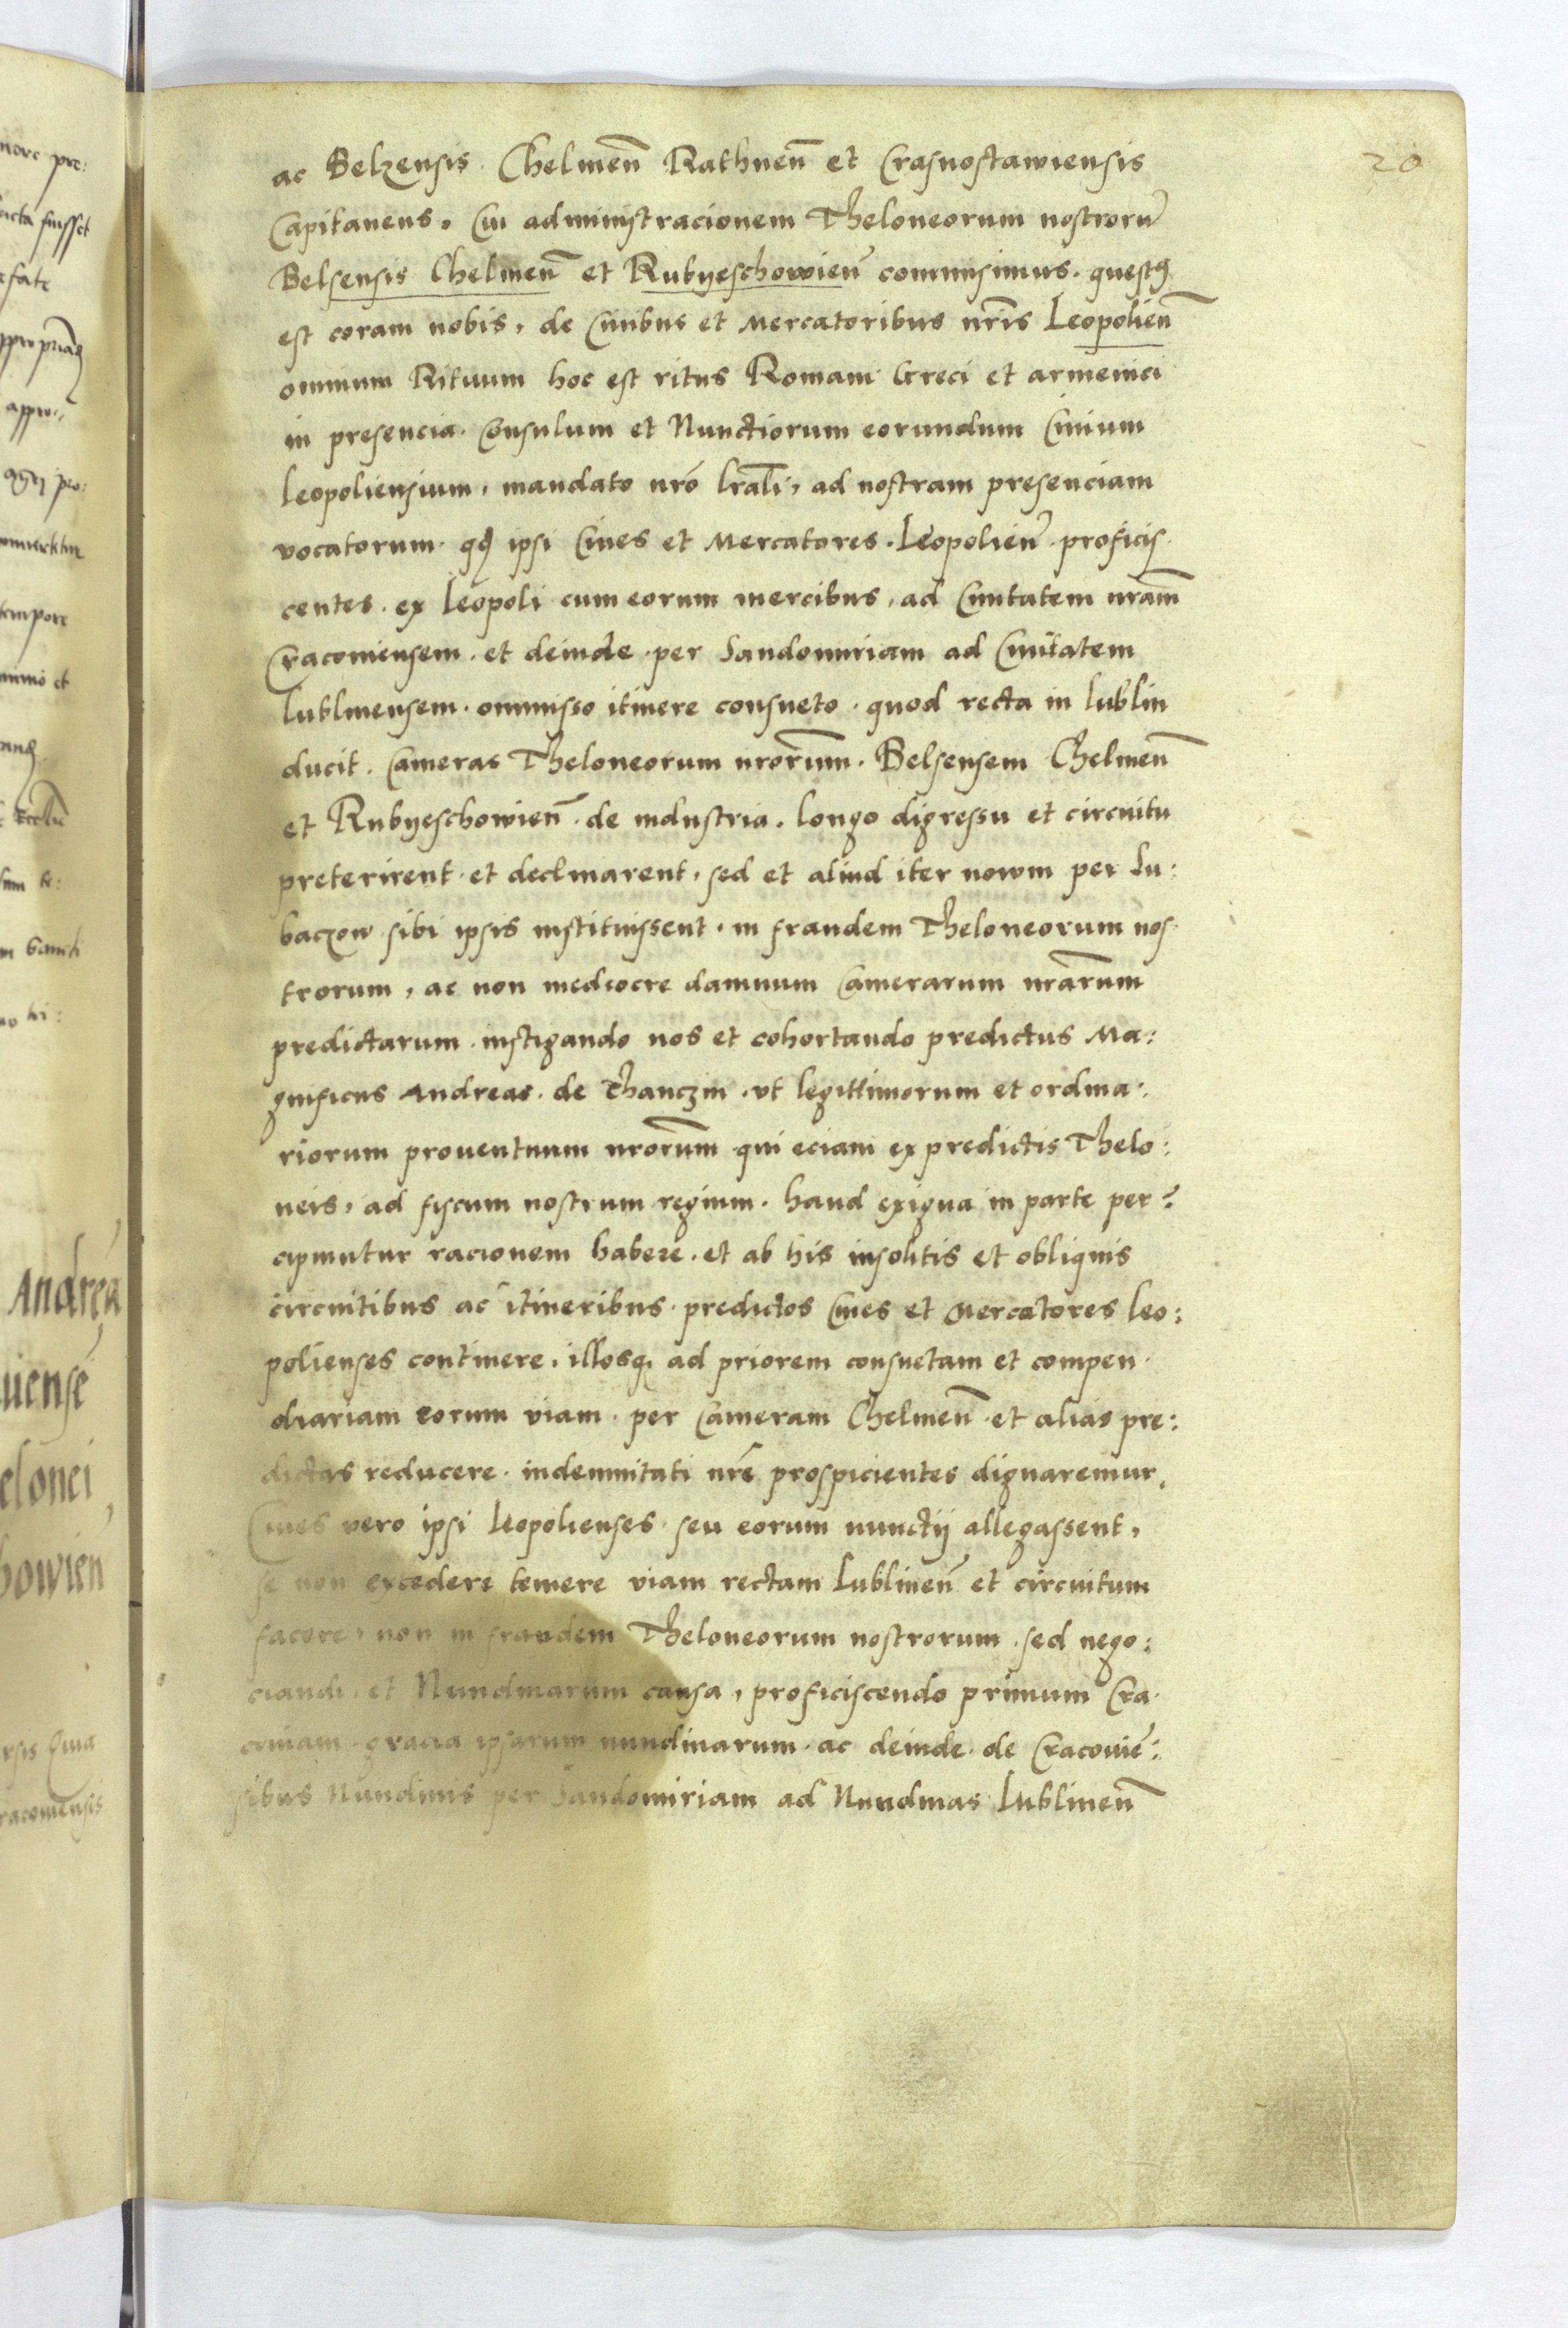 20
ac Belzensis Chelmeñ Rathneñ et Crasnostawiensis
Capitaneus, Cui administracionem Theloneorum nostrorũ
Belsensis Chelmeñ et Rubyeschowieñ commisimus. questꝯ
est coram nobis, de Ciuibus et Mercatoribus nris̃ Leopolieñ
omnium Rituum hoc est ritus Romani Greci et armenici
in presencia Consulum et Nunctiorum eorundum Ciuium
leopoliensium, mandato nrõ lral̃i, ad nostram presenciam
vocatorum. qđ ipsi Ciues et Mercatores Leopolieñ proficis
centes ex leopoli cum eorum mercibus, ad Ciuitatem nram̃
Cracouiensem et deinde per Sandomiriam ad Ciuitatem
lublinensem. ommisso itinere consueto. quod recta in lublin
ducit. Cameras Theloneorum nrorũm. Belsensem Chelmeñ
et Rubyeschowieñ de industria. longo digressu et circuitu
preterirent et declinarent, sed et aliud iter nowm per Lu:
baczow sibi ipsis instituissent. in fraudem Theloneorum nos
trorum, ac non mediocre damnum Camerarum nrarũm
predictarum instigando nos et cohortando predictus Ma:
gnificus Andreas de Thanczin. vt legittimorum et ordina:
riorum prouentuum nrorũm qui eciam ex predictis Thelo:
neis, ad fiscum nostrum regium. haud exigua in parte per:
cipiuntur racionem habere. et ab his insolitis et obliquis
circuitibus ac itineribus predictos Ciues et Mercatores leo:
polienses continere, illosq; ad priorem consuetam et compen
diariam eorum viam per Cameram Chelmeñ et alias pre:
dictas reducere. indemnitati nrẽ prospicientes dignaremur.
Ciues vero ipsi leopolienses seu eorum nunctij allegassent,
se non excedere temere viam rectam Lublineñ et circuitum
facere, non in fraudem Theloneorum nostrorum. sed nego:
ciandi et Nundinarum causa, proficiscendo primum Cra
couiam gracia ipsarum nundinarum. ac deinde de Cracouiẽ:
sibus Nundinis per Sandomiriam ad Nundinas Lublineñ